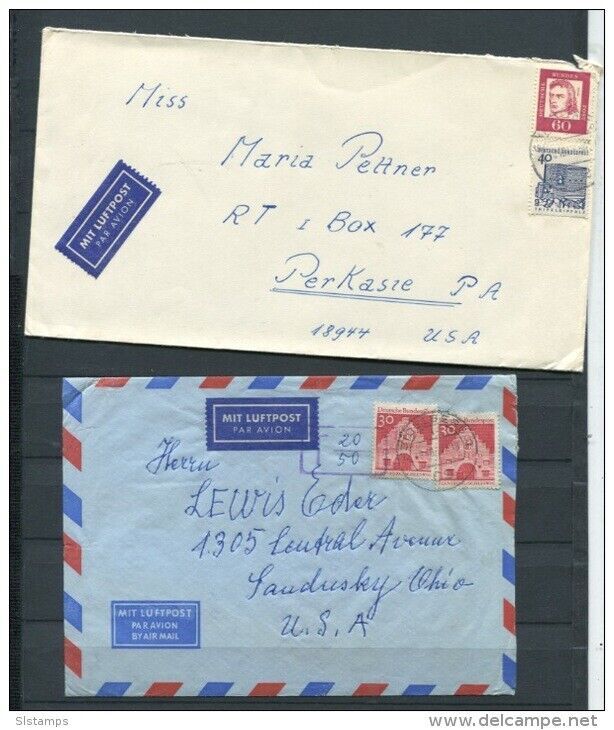 Miss
Maria Pettner
RT 1 Box 177
Perkasie PA
18944 USA
MIT LUFTPOST
PAR AVION
DEUTSCHE
BUNDES
POST
60
40
TRIFELS/PFALZ
MIT LUFTPOST
PAR AVION
20
50
Deutsche Bundespost
30
30
Herrn
LEWIS Eder
1305 Central Avenue
Sandusky Ohio
U.S.A
MIT LUFTPOST
PAR AVION
BY AIR MAIL
Slstamps
www.delcampe.net